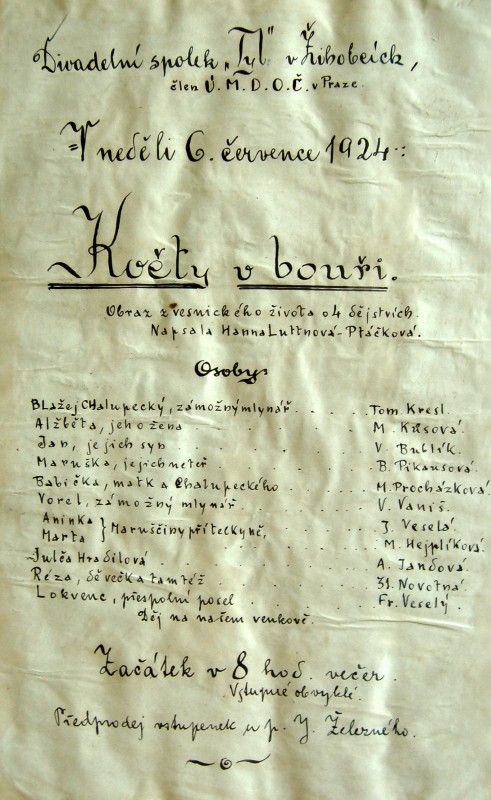 Divadelní spolek „Tyl" v Žibobcích,
člen Ú. M. D. O. Č. v Praze.
V neděli 6. července 1924:
Květy v bouři.
Obraz z vesnického života o 4 dějstvích.
Napsala Hanna Luttnová-Ptáčková.
Osoby:
Blažej Chalupecký, zámožný mlynář . . . . Tom Kresl.
Alžběta, jeho žena . . . . M. Krsová.
Jan, jejich syn . . . . V. Bublík.
Maruška, jejich neteř . . . . B. Pikausová.
Babička, matka Chalupeckého . . . . M. Procházková.
Vorel, zámožný mlynář . . . . V. Vaniš.
Aninka } Maruščiny přítelkyně, . . . J. Veselá.
Marta M. Hejplíková.
Julča Hradilová . . . . A. Jandová.
Réza, děvečka tamtéž . . . . Novotná.
Lokvenc, přespolní posel . . . . Fr. Veselý.
Děj na našem venkově.
Začátek v 8 hod. večer.
Vstupné obvyklé.
Předprodej vstupenek u p. J. Železného.